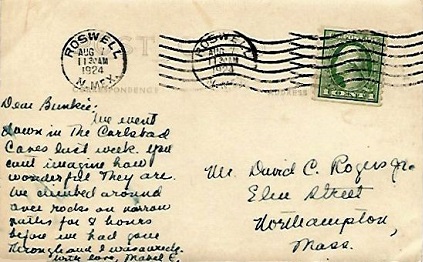 ROSWELL
AUG 7
11 30 AM
1924
N. MEX.
ROSWELL
AUG 7
1130AM
1924
N. MEX.
POST
CORRESPONDENCE
ADDRESS
CENT
Dear Bunkie:
We went
down in The Carlsbad
Caves last week. You
cant imagine how
wonderful They are.
We climbed around
over rocks on narrow
paths for 8 hours
before we had gone
through and I was
With love, Mabel E.
Mr. David C. Rogers Jr.
Elm Street
Northampton,
Mass.